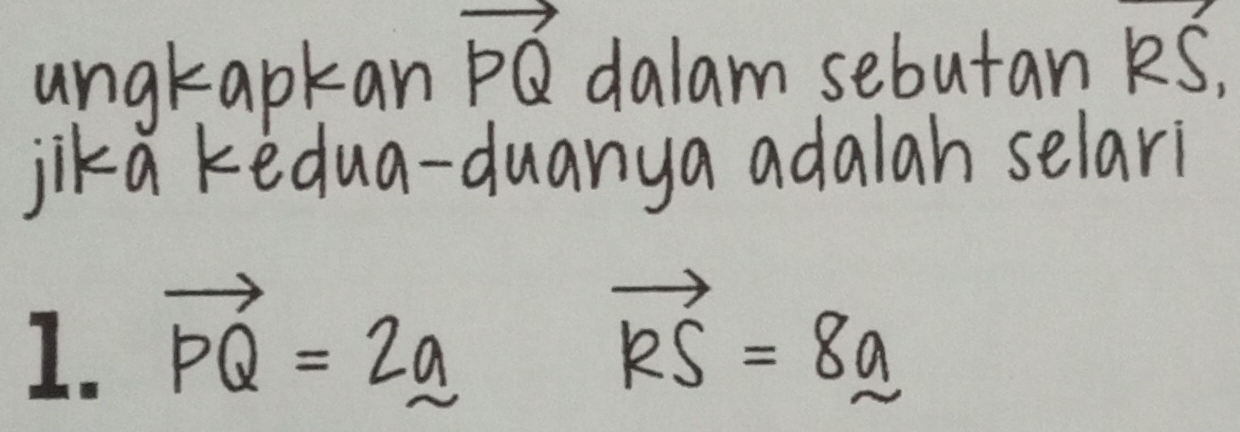 ungkapkan PQ dalam sebutan RS,
jika kedua-duanya adalah selari
1. PQ = 2a RS = 8a